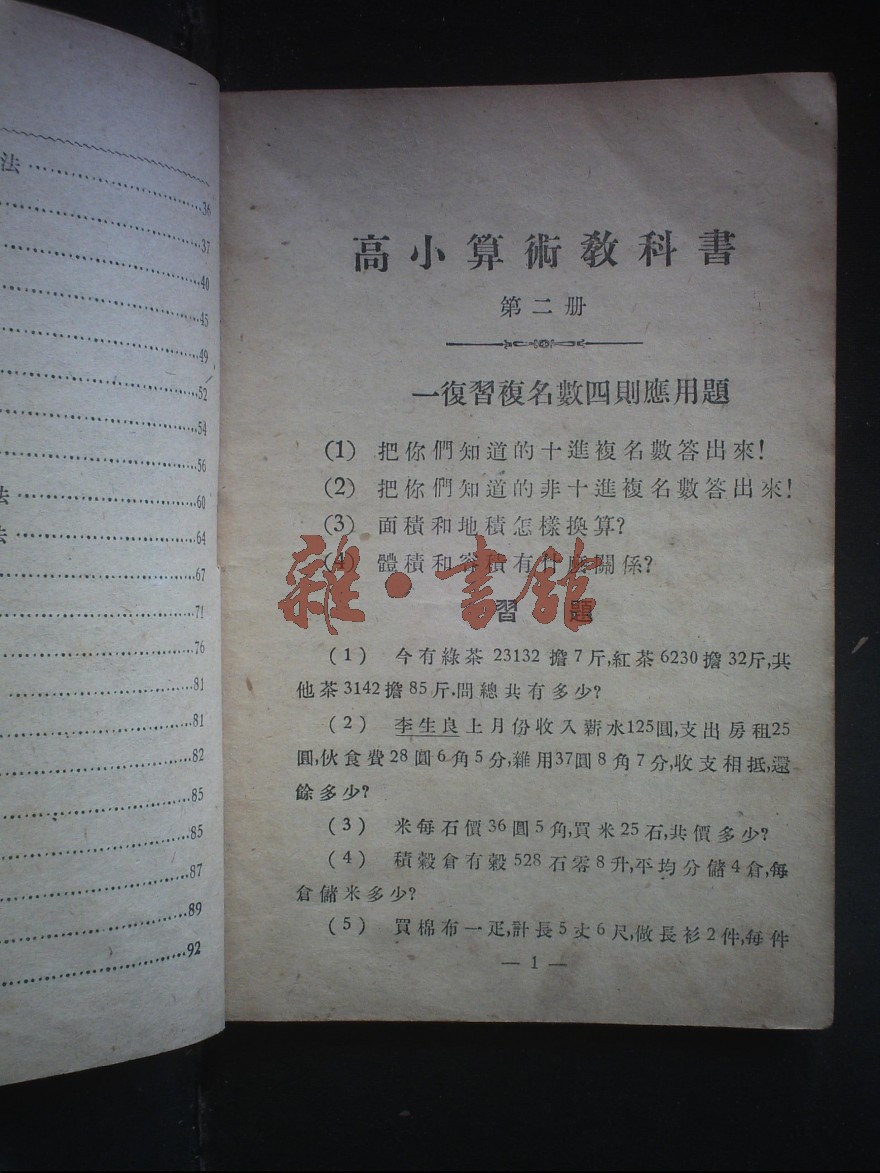 法
36
37
40
45
49
52
54
56
法 60
法 64
67
71
76
81
81
82
85
85
87
89
92
高小算術教科書
第二册
一復習複名數四則應用題
(1) 把你們知道的十進複名數答出來!
(2) 把你們知道的非十進複名數答出來!
(3) 面積和地積怎樣換算?
(4) 體積和容積有什麼關係?
雜·書館
習題
(1) 今有綠茶23132擔7斤,紅茶6230擔32斤,其
他茶3142擔85斤.問總共有多少?
(2) 李生良上月份收入薪水125圓,支出房租25
圓,伙食費28圓6角5分,雜用37圓8角7分,收支相抵,還
餘多少?
(3) 米每石價36圓5角,買米25石,共價多少?
(4) 積穀倉有穀528石零8升,平均分儲4倉,每
倉儲米多少?
(5) 買棉布一疋,計長5丈6尺,做長衫2件,每件
— 1 —